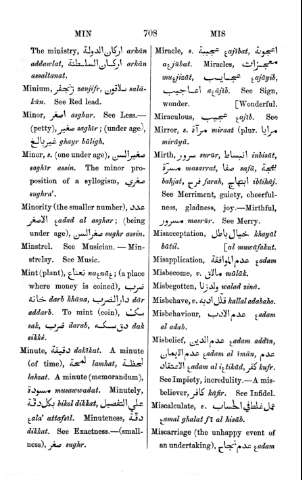 MIN 708 MIS
The ministry, اركان الدولة arkān
addawlat, اركان السلطنة arkān
assaltanat.
Minium, زنجفر zanjifr, سلاقون salā-
kūn. See Red lead.
Minor, اصغر asghar. See Less.—
(petty), صغير saghīr; (under age),
غير بالغ ghayr bāligh.
Minor, s. (one under age), صغير السن
saghīr assin. The minor pro-
position of a syllogism, صغرى
sughra'.
Minority (the smaller number), عدد
الاصغر ƹadad al asghar; (being
under age), صغر السن sughr assin.
Minstrel. See Musician. — Min-
strelsy. See Music.
Mint (plant), نعناع naƹnāƹ; (a place
where money is coined), ضرب
خانه darb khāna, دار الضرب dār
addarb. To mint (coin), سكّ
sak, ضرب darab, دق سكه dak
sikké.
Minute, دقيقة dakīkat. A minute
(of time), لحظة lahzat, لمحة lamhat,
lahzat. A minute (memorandum),
مسودة musawwadat. Minutely,
بكل دقة bikol dikkat, علي التفصيل
ƹala' attafsīl. Minuteness, دقة
dikkat. See Exactness.—(small-
ness), صغر sughr.
Miracle, s. عجيبة ƹajībat, اعجوبة
aƹjūbat. Miracles, معجزات
muƹjizāt, عجايب ƹajāyib,
اعاجيب aƹājīb. See Sign,
wonder. [Wonderful.
Miraculous, عجيب ƹajīb. See
Mirror, s. مرآة miraat (plur. مرايا
mirāyā.
Mirth, سرور surūr, انبساط inbisāt,
مسرة masarrat, صفا safā, بهجة
bahjat, فرح farah, ابتهاج ibtihāj.
See Merriment, gaiety, cheerful-
ness, gladness, joy.—Mirthful,
مسرور masrūr. See Merry.
Misacceptation, خيال باطل khayāl
bātil. [al muwāfakat.
Misapplication, عدم الموافقة ƹadam
Misbecome, v. مالاق mālāk.
Misbegotten, ولد زنا walad zinā.
Misbehave, v. قلل ادبه kallal adabaho.
Misbehaviour, عدم الادب ƹadam
al adab.
Misbelief, عدم الدين ƹadam addīn,
عدم الايمان ƹadam al īmān, عدم
الاعتقاد ƹadam al iƹtikād, كفر kufr.
See Impiety, incredulity.—A mis-
believer, كافر kāfir. See Infidel.
Miscalculate, v. عمل غلط في الحساب
ƹamal ghalat fī al hisāb.
Miscarriage (the unhappy event of
an undertaking), عدم نجاح ƹadam